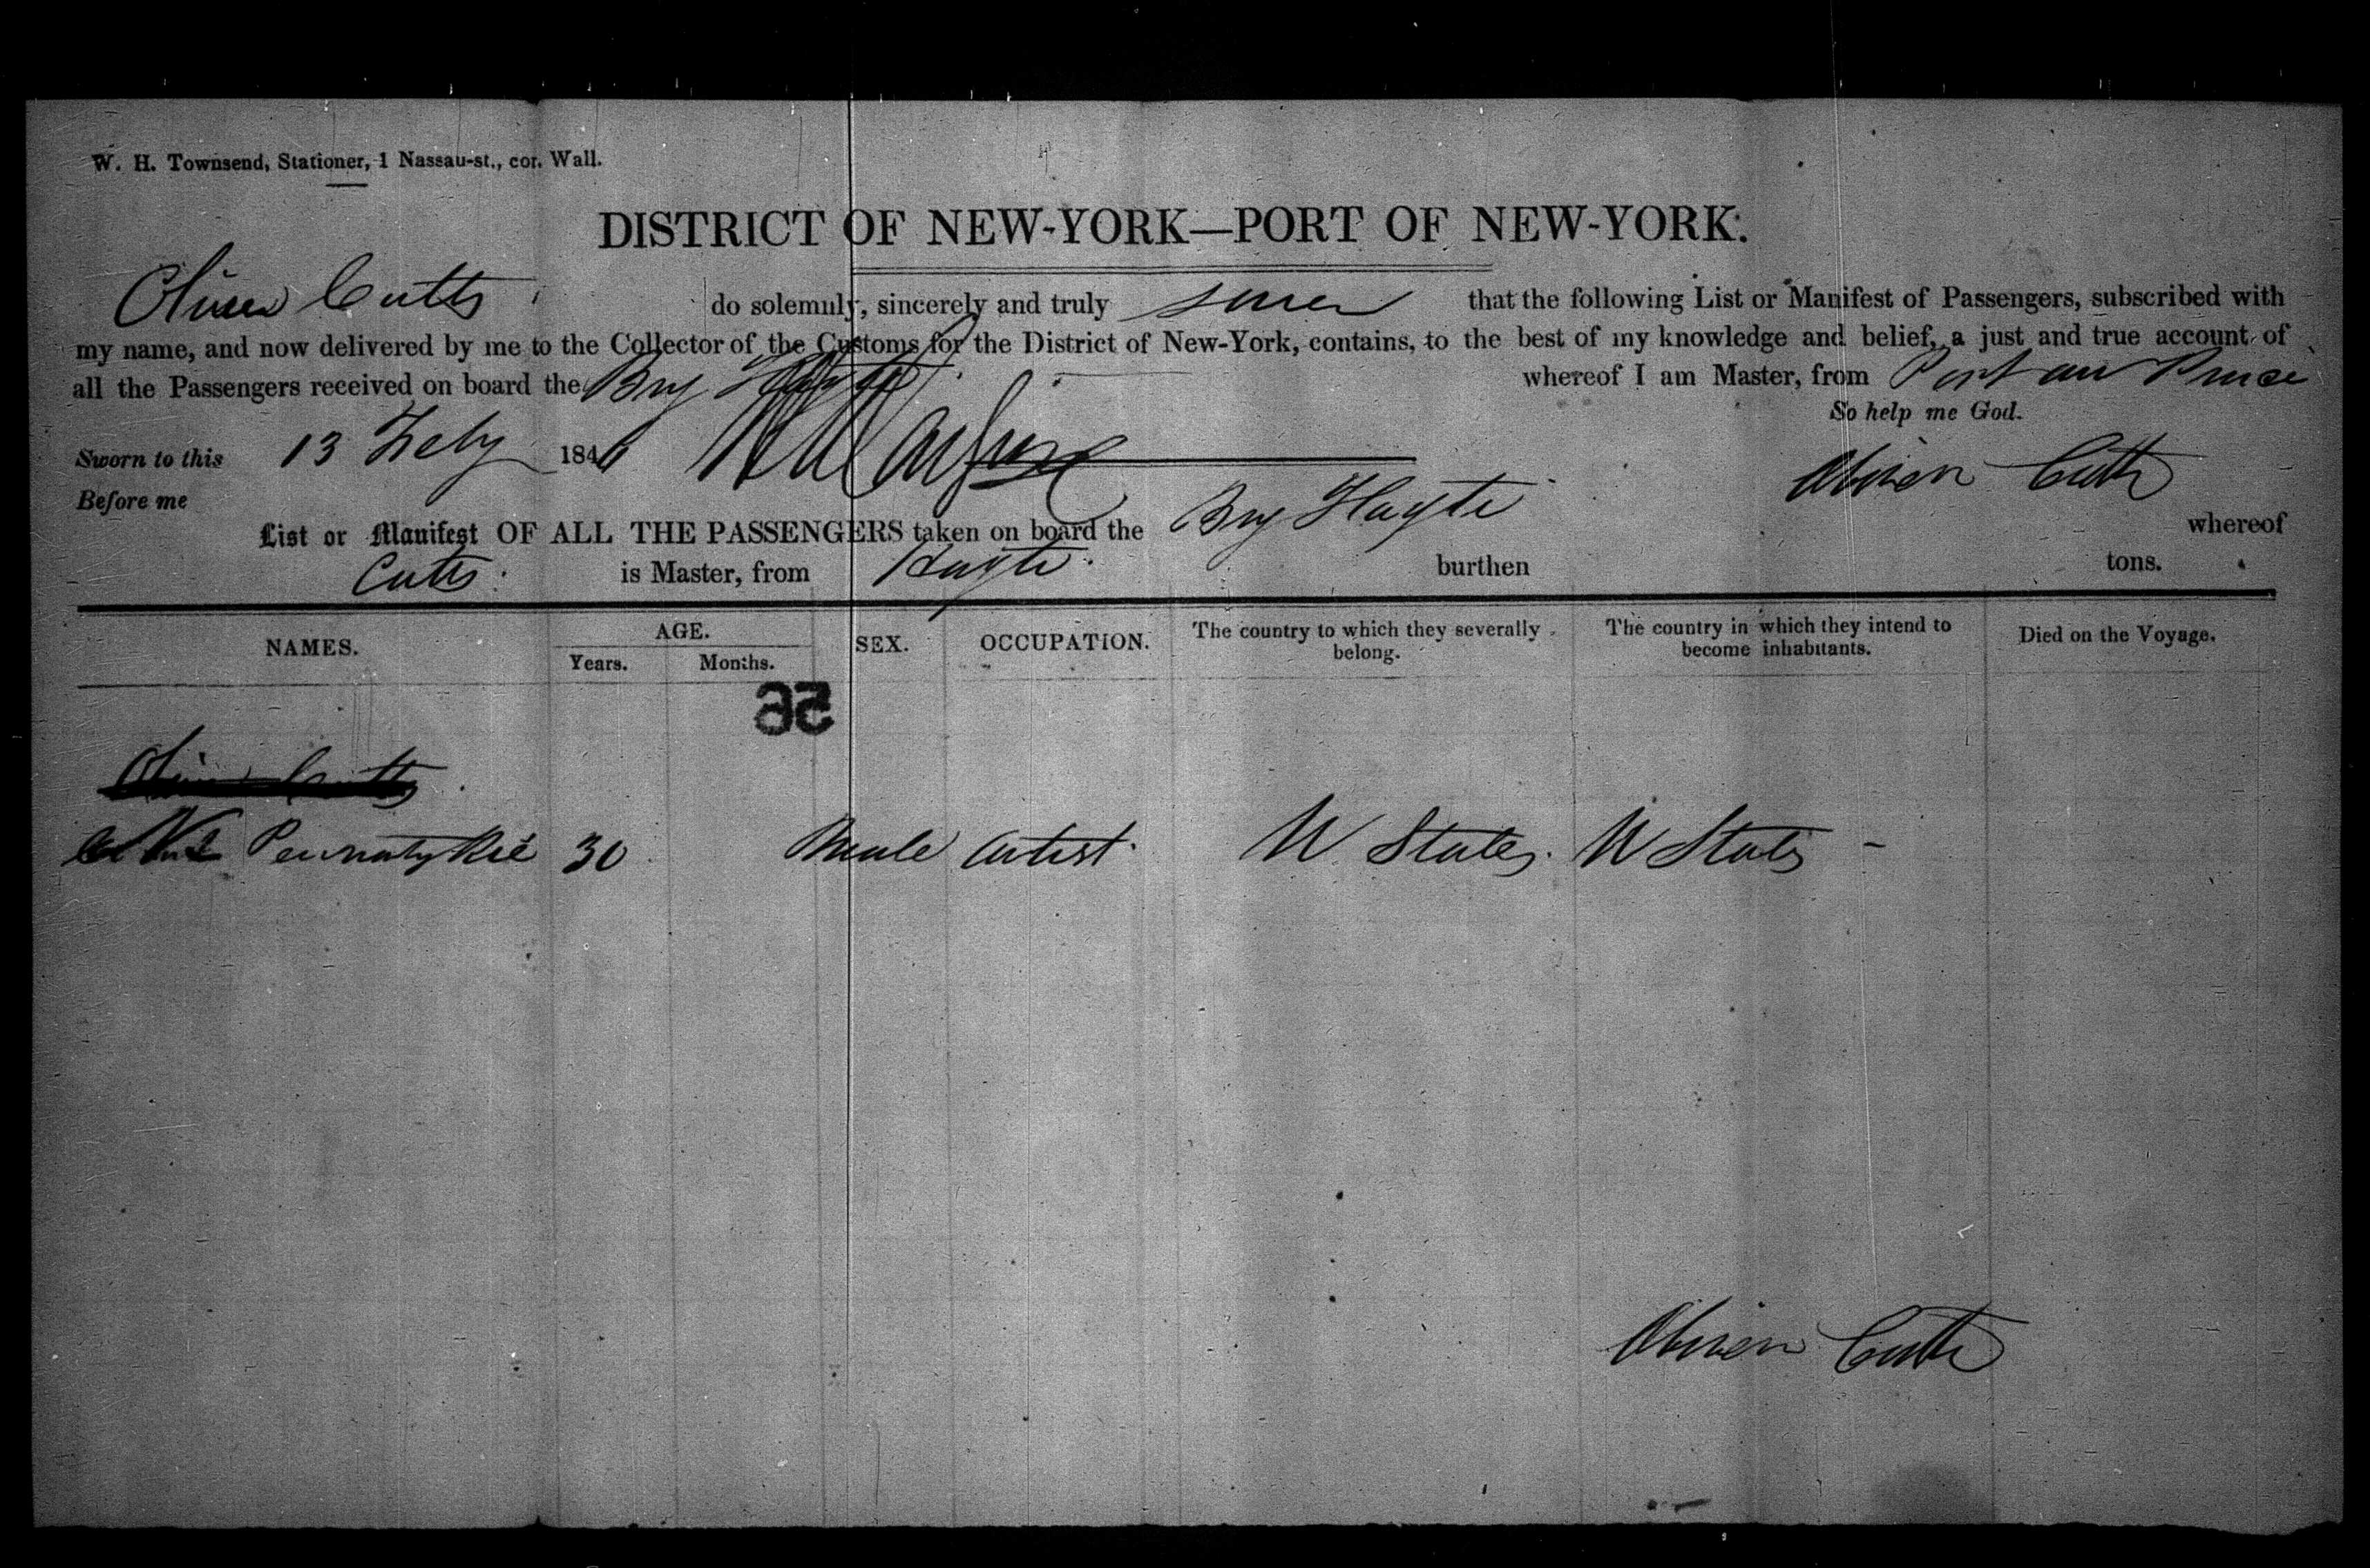 W. H. Townsend, Stationer, 1 Nassau-st., cor. Wall.
DISTRICT OF NEW-YORK—PORT OF NEW-YORK.
Oliver Cutts do solemnly, sincerely and truly swear that the following List or Manifest of Passengers, subscribed with
my name, and now delivered by me to the Collector of the Customs for the District of New-York, contains, to the best of my knowledge and belief, a just and true account of
all the Passengers received on board the Brig Hayti whereof I am Master, from Port au Prince
So help me God.
Sworn to this 13 Feby 1846
Oliver Cutts
Before me
List or Manifest OF ALL THE PASSENGERS taken on board the Brig Hayti whereof
Cutts is Master, from Hayti burthen tons.
NAMES. AGE. SEX. OCCUPATION. The country to which they severally belong. The country in which they intend to become inhabitants. Died on the Voyage.
Years. Months.
56
Oliver Cutts
30 Male Artist U States. U States -
Oliver Cutts